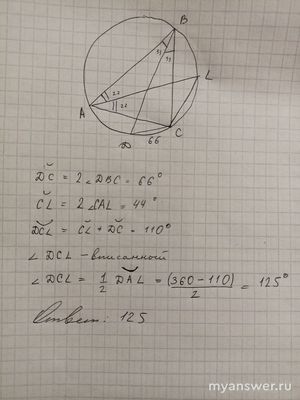 B
33
33
L
22
22
A
C
D
66
D͝C = 2 ∠DBC = 66°
C͝L = 2 ∠CAL = 44°
D͝CL = C͝L + D͝C = 110°
∠ DCL - вписанный
∠ DCL = 1/2 D͝AL = (360-110)/2 = 125°
Ответ: 125
myanswer.ru